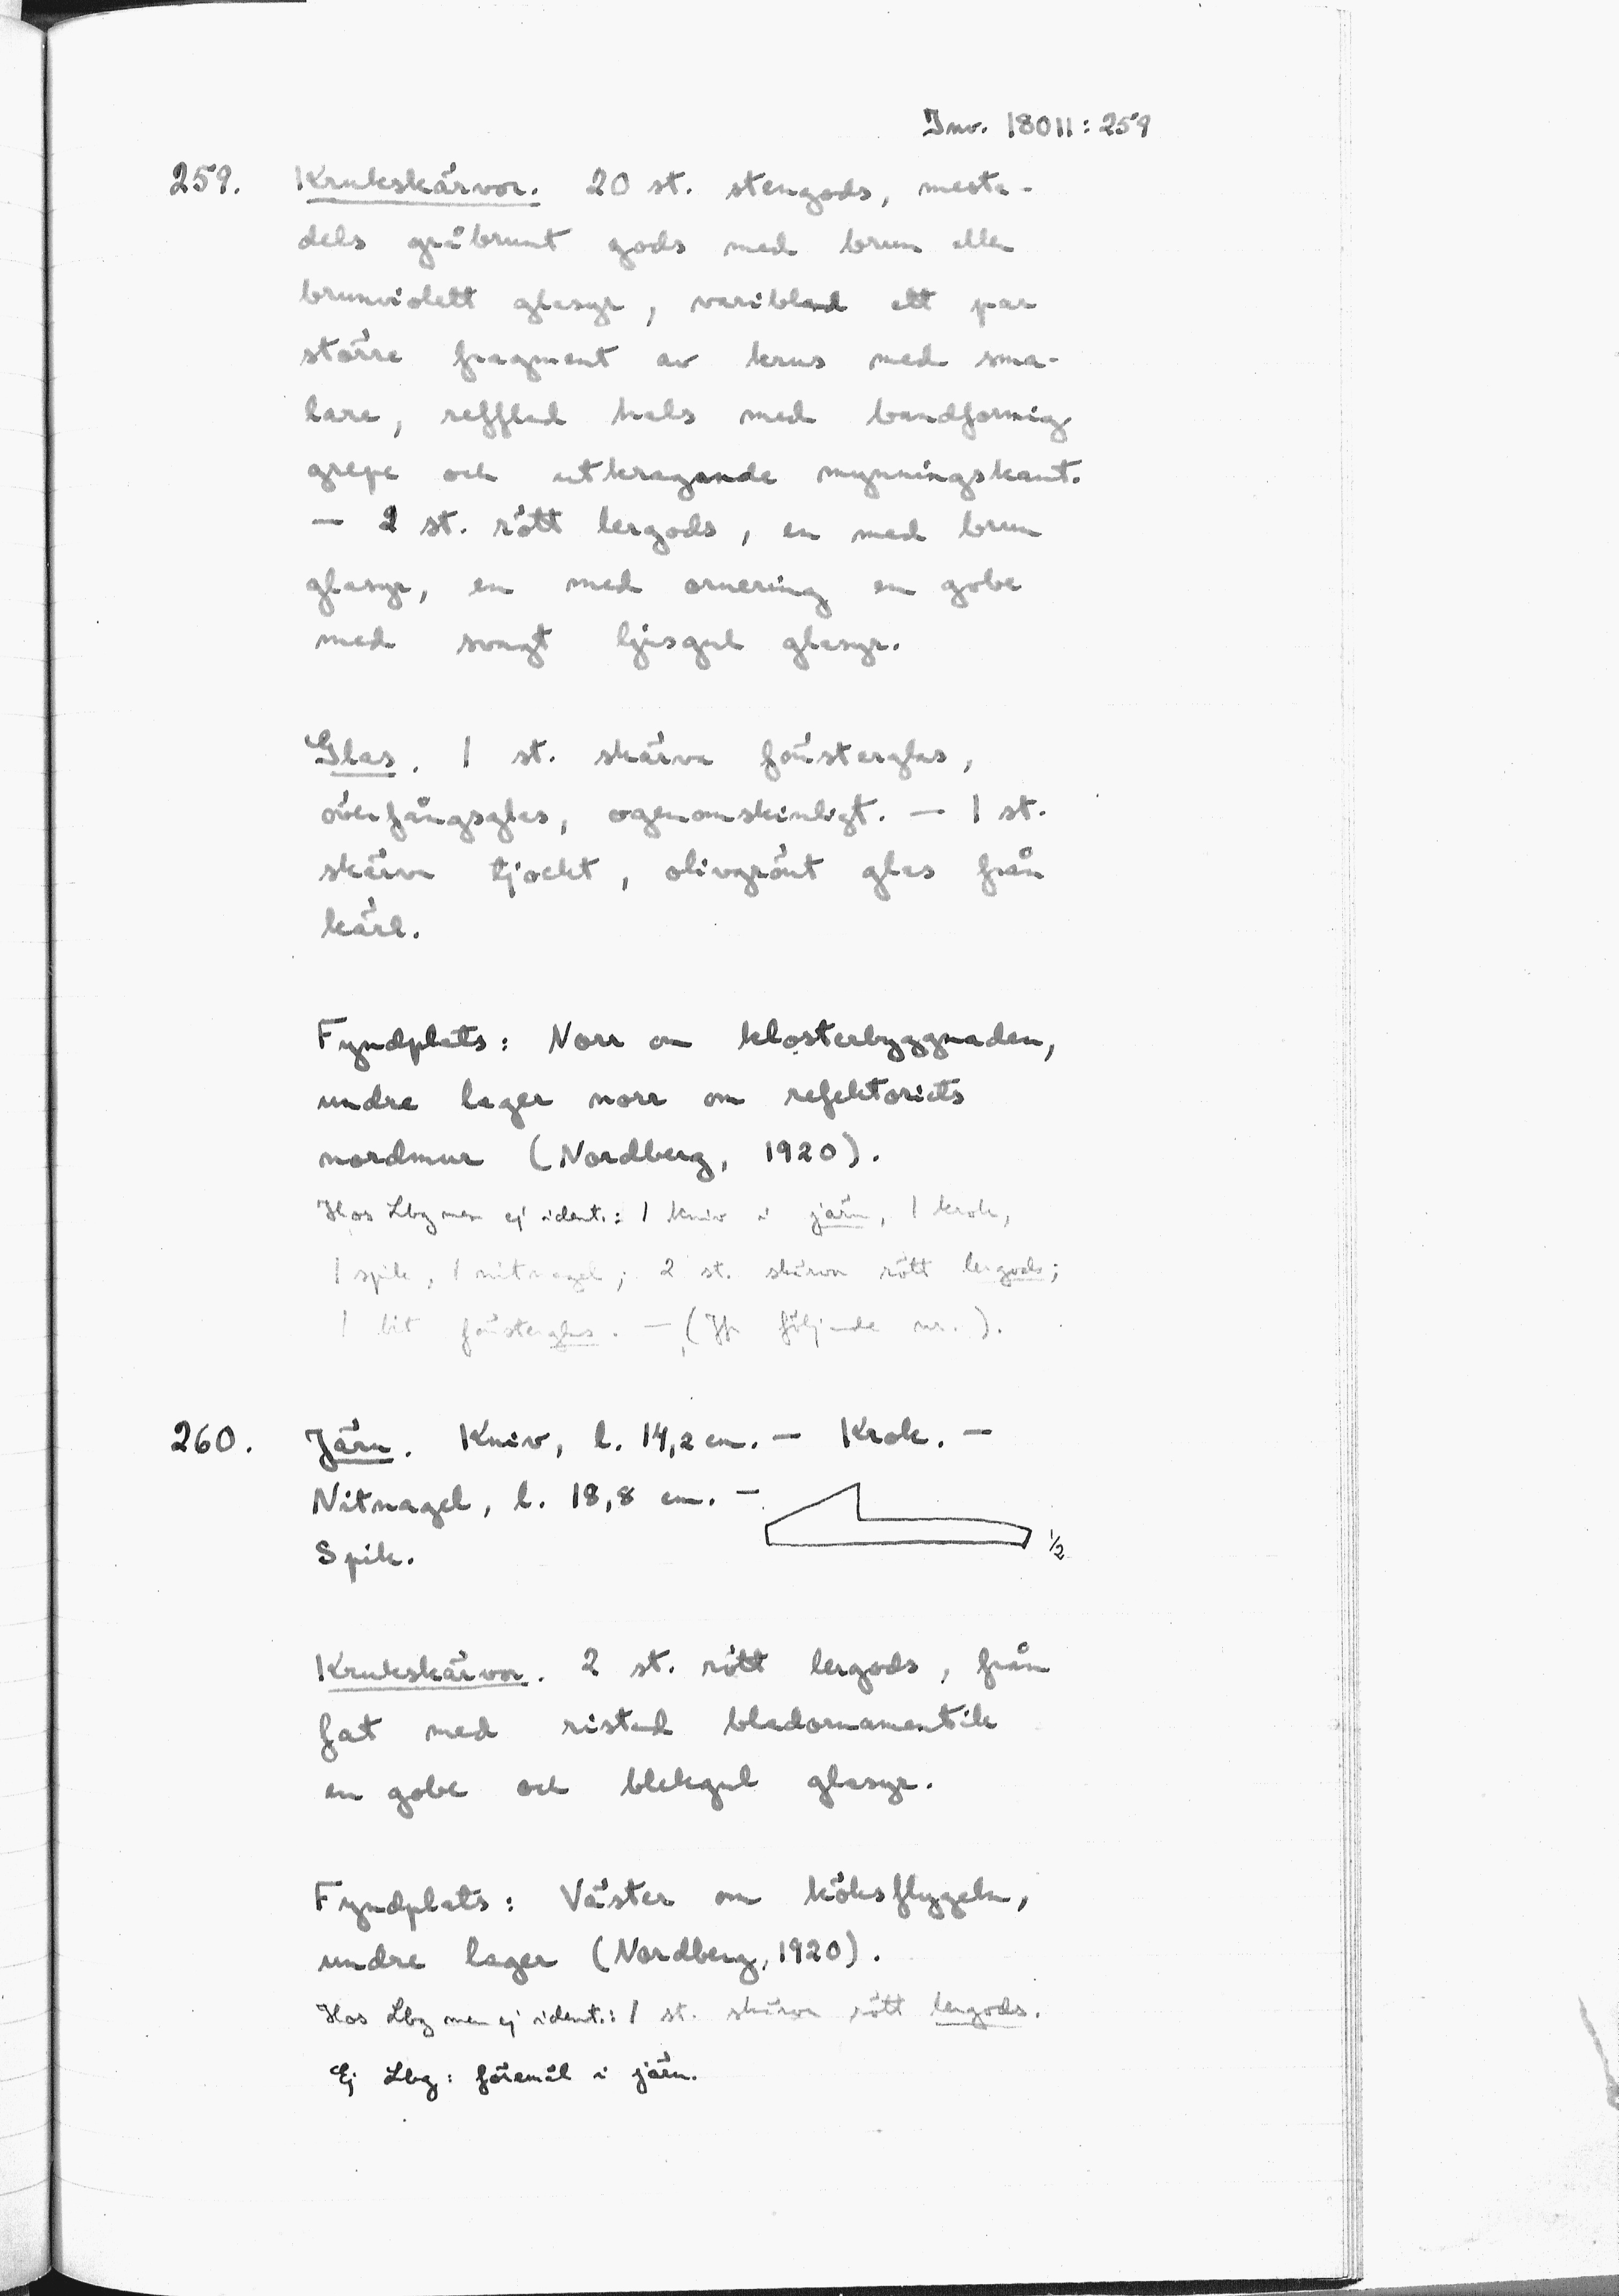 Inv. 18011:259
259. Krukskärvor. 20 st. stengods, meste-
dels gråbrunt gods med brun eller
brunviolett glasyr, varibland ett par
större fragment av krus med sma-
lare, refflad hals med bandformig
grepe och utkragande mynningskant.
— 2 st. rött lergods, en med brun
glasyr, en med ornering en gobe
med svagt ljusgul glasyr.
Glas. 1 st. skärva fönsterglas,
överfångsglas, ogenomskinligt. — 1 st.
skärva tjockt, olivgrönt glas från
kärl.
Fyndplats: Norr om klosterbyggnaden,
undre lager norr om refektoriets
nordmur (Nordberg, 1920).
Hos Lbg men ej ident.: 1 kniv i järn, 1 krok,
1 spik, 1 nitnagel; 2 st. skärvor rött lergods;
1 bit fönsterglas. — (Jfr följande nr.).
260. Järn. Kniv, l. 14,2 cm. — Krok. —
Nitnagel, l. 18,8 cm. —
Spik.
1/2
Krukskärvor. 2 st. rött lergods, från
fat med ristad bladornamentik
en gobe och blekgul glasyr.
Fyndplats: Väster om köksflygeln,
undre lager (Nordberg, 1920).
Hos Lbg men ej ident.: 1 st. skärva rött lergods.
Ej Lbg: föremål i järn.